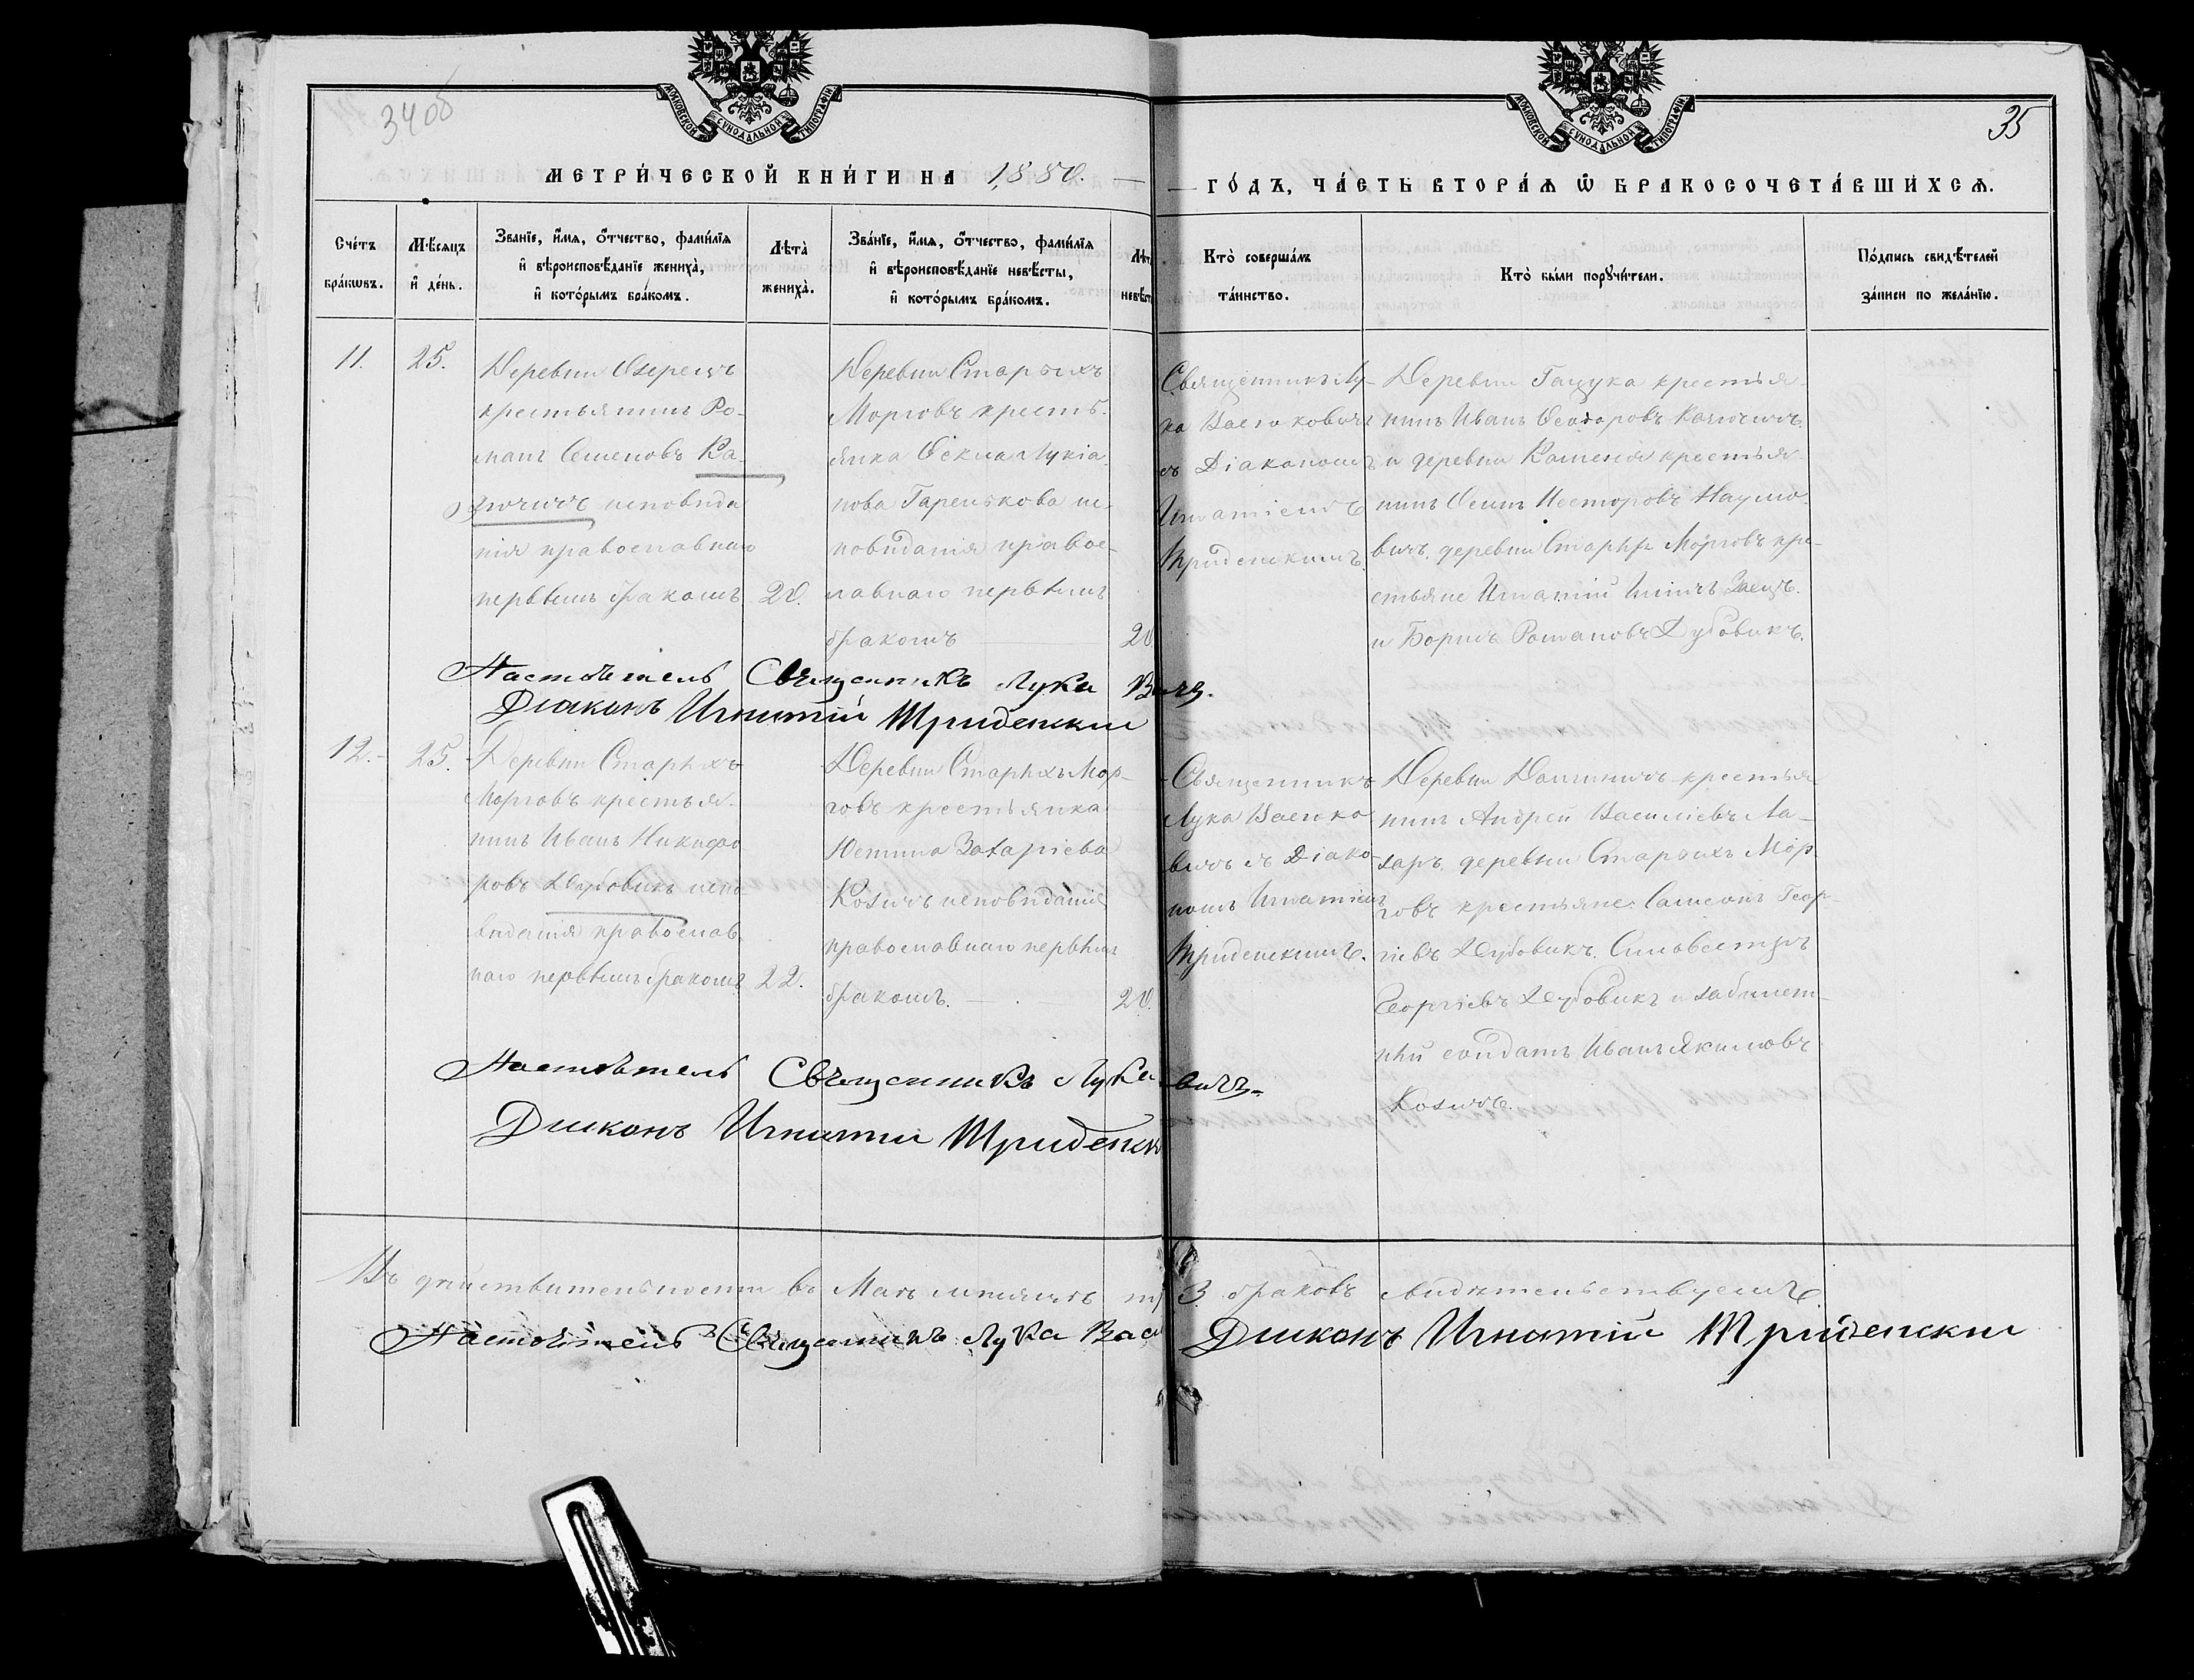 34об
35
МОСКОВСКОЙ СУНОДАЛЬНОЙ ТИПОГРАФІИ
МОСКОВСКОЙ СУНОДАЛЬНОЙ ТИПОГРАФІИ
МЕТРИ́ЧЕСКОЙ КНИ́ГИ НА 1880.
ГО́ДЪ, ЧА́СТЬ ВТОРА́Ѧ Ѡ БРАКОСОЧЕТА́ВШИХСѦ.
Сче́тъ
бра́кѡвъ.
Мѣ́сяцъ
и҆ де́нь.
Зва́нїе, и҆́мѧ, ѻ҆́тчество, фами́лїѧ
и҆ вѣроисповѣ́данїе жениха̀,
и҆ кото́рымъ бра́комъ.
Лѣ́та̀
жениха̀.
Зва́нїе, и҆́мѧ, ѻ҆́тчество, фами́лїѧ
и҆ вѣроисповѣ́данїе невѣ́сты,
и҆ кото́рымъ бра́комъ.
Лѣт
невѣст
Кто̀ соверша́лъ
та́инство.
Кто̀ бы́ли порꙋчи́тели.
По́дпись свидѣ́телей
за́писи по жела́нїю.
11.
25.
Деревни Озерецъ
крестьянинъ Ро-
манъ Семеновъ Ка-
лючичъ исповѣда
нія православнаго
первымъ бракомъ
20.
Деревни Старыхъ
Морговъ кресть-
янка Ѳекла Лукіа-
нова Гаренькова ис-
повѣданія правос-
лавнаго первымъ
бракомъ
20
Священникъ Лу-
ка Васюковичъ
съ Діакономъ
Игнатіемъ
Тридепскимъ.
Деревни Гацука крестья-
нинъ Иванъ Ѳеодоровъ Калючичъ
и деревни Каменя крестья-
нинъ Осипъ Несторовъ Наумо-
вичъ, деревни Старыхъ Морговъ кре-
стьяне Игнатій Заецъ.
и Борисъ Романовъ Дубовикъ.
Настоятель Священникъ Лука Вичъ.
Діаконъ Игнатій Тридепскій
12.
25.
Деревни Старыхъ
Морговъ крестья-
нинъ Иванъ Никифо
ровъ Дубовикъ испо
вѣданія православ
наго первымъ бракомъ
22.
Деревни Старыхъ Мор-
говъ крестьянка
Юстина Захаріева
Козичъ исповѣданія
православнаго первымъ
бракомъ.
20.
Священникъ
Лука Васюко
вичъ съ Діако-
номъ Игнатіемъ
Тридепскимъ.
Деревни крестья-
нинъ Андрей Василіевъ Ла-
заръ, деревни Старыхъ Мор-
говъ крестьяне: Самсонъ Геор-
гіевъ Дубовикъ, Сильвестръ
Георгіевъ Дубовикъ и забилет-
ный солдатъ Иванъ Якимовъ
Козичъ.
Настоятель Священникъ Лука вичъ.
Діаконъ Игнатій Тридепск
Въ дѣйствительности въ Маѣ мѣсяцѣ 3 браковъ свидѣтельствуемъ.
Настоятель Священникъ Лука Вас
Діаконъ Игнатій Тридепскій